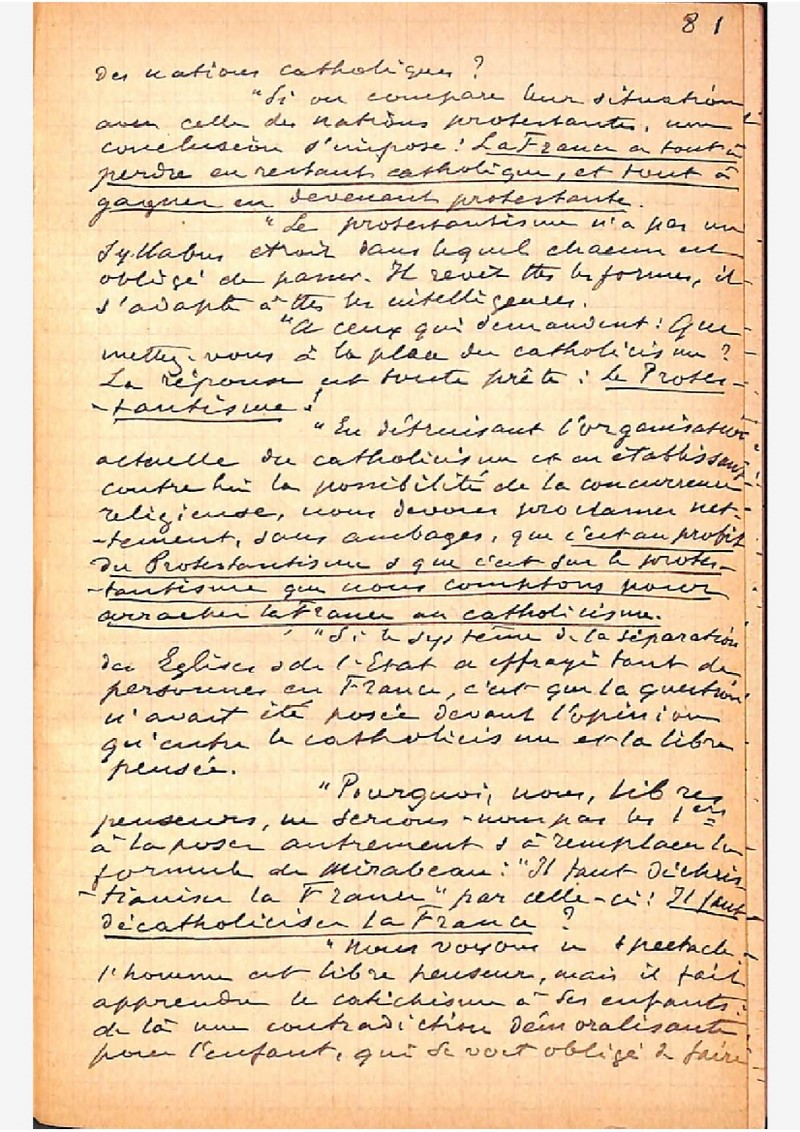 81
des nations catholiques ?
"Si on compare leur situation
avec celle des nations protestantes, une
conclusion s'impose : La France a tout à
perdre en restant catholique, et tout à
gagner en devenant protestante.
"Le protestantisme n'a pas un
Syllabus étroit dans lequel chacun est
obligé de passer. Il revêt ttes les formes, il
s'adapte à ttes les intelligences.
"A ceux qui demandent : Que
mettez-vous à la place du catholicisme ?
La réponse est toute prête : le Protes-
-tantisme !
"En détruisant l'organisation
actuelle du catholicisme et en établissant
contre lui la possibilité de la concurrence
religieuse, nous devons proclamer net-
-tement, sans ambages, que c'est au profit
du Protestantisme & que c'est sur le protes-
-tantisme que nous comptons pour
arracher la France au catholicisme.
"Si le système de la séparation
des Eglises & de l'Etat a effrayé tant de
personnes en France, c'est que la question
n'avait été posée devant l'opinion
qu'entre le catholicisme et la libre
pensée.
"Pourquoi, nous, libres
penseurs, ne serions-nous pas les 1ers
à la poser autrement & à remplacer la
formule de Mirabeau : "Il faut déchris-
-tianiser la France" par celle-ci : Il faut
décatholiciser la France ?
"Nous voyons ce spectacle
l'homme est libre penseur, mais il fait
apprendre le catéchisme à ses enfants :
de là une contradiction démoralisante
pour l'enfant, qui se voit obligé de faire